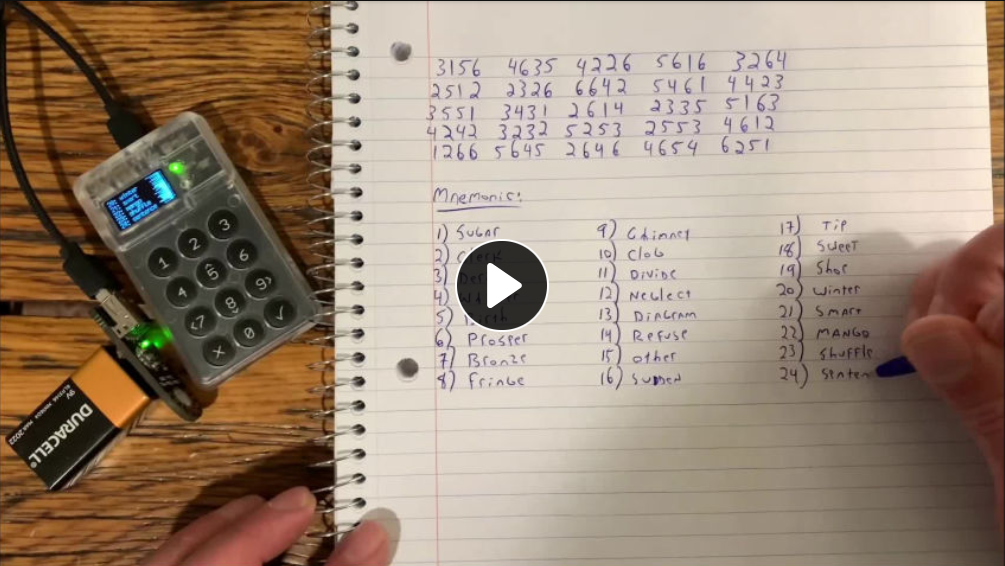 3156 4635 4226 5616 3264
2512 2326 6642 5461 4423
3551 3431 2614 2335 5163
4242 3232 5253 2553 4612
1266 5645 2646 4654 6251
Mnemonic:
1) Sugar
2)
3)
4)
5)
6) Prosper
7) Bronze
8) Fringe
9) Chimney
10) Clog
11) Divide
12) Neglect
13) Diagram
14) Refuse
15) Other
16) Sudden
17) Tip
18) Sweet
19) Shoe
20) Winter
21) Smart
22) MANGO
23) Shuffle
24) Senten
winter
mango
shuffle
sentence
1 2 3
4 5 6
7 8 9
X 0 ✓
DURACELL
9V